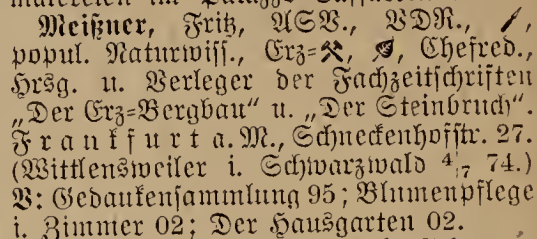 Meißner, Fritz, ASV., VDR.,
popul. Naturwiss., Erz=⚒, Chefred.,
Hrsg. u. Verleger der Fachzeitschriften
„Der Erz=Bergbau“ u. „Der Steinbruch“.
Frankfurt a. M., Schneckenhofstr. 27.
(Wittlensweiler i. Schwarzwald 4/7 74.)
V: Gedankensammlung 95; Blumenpflege
i. Zimmer 02; Der Hausgarten 02.